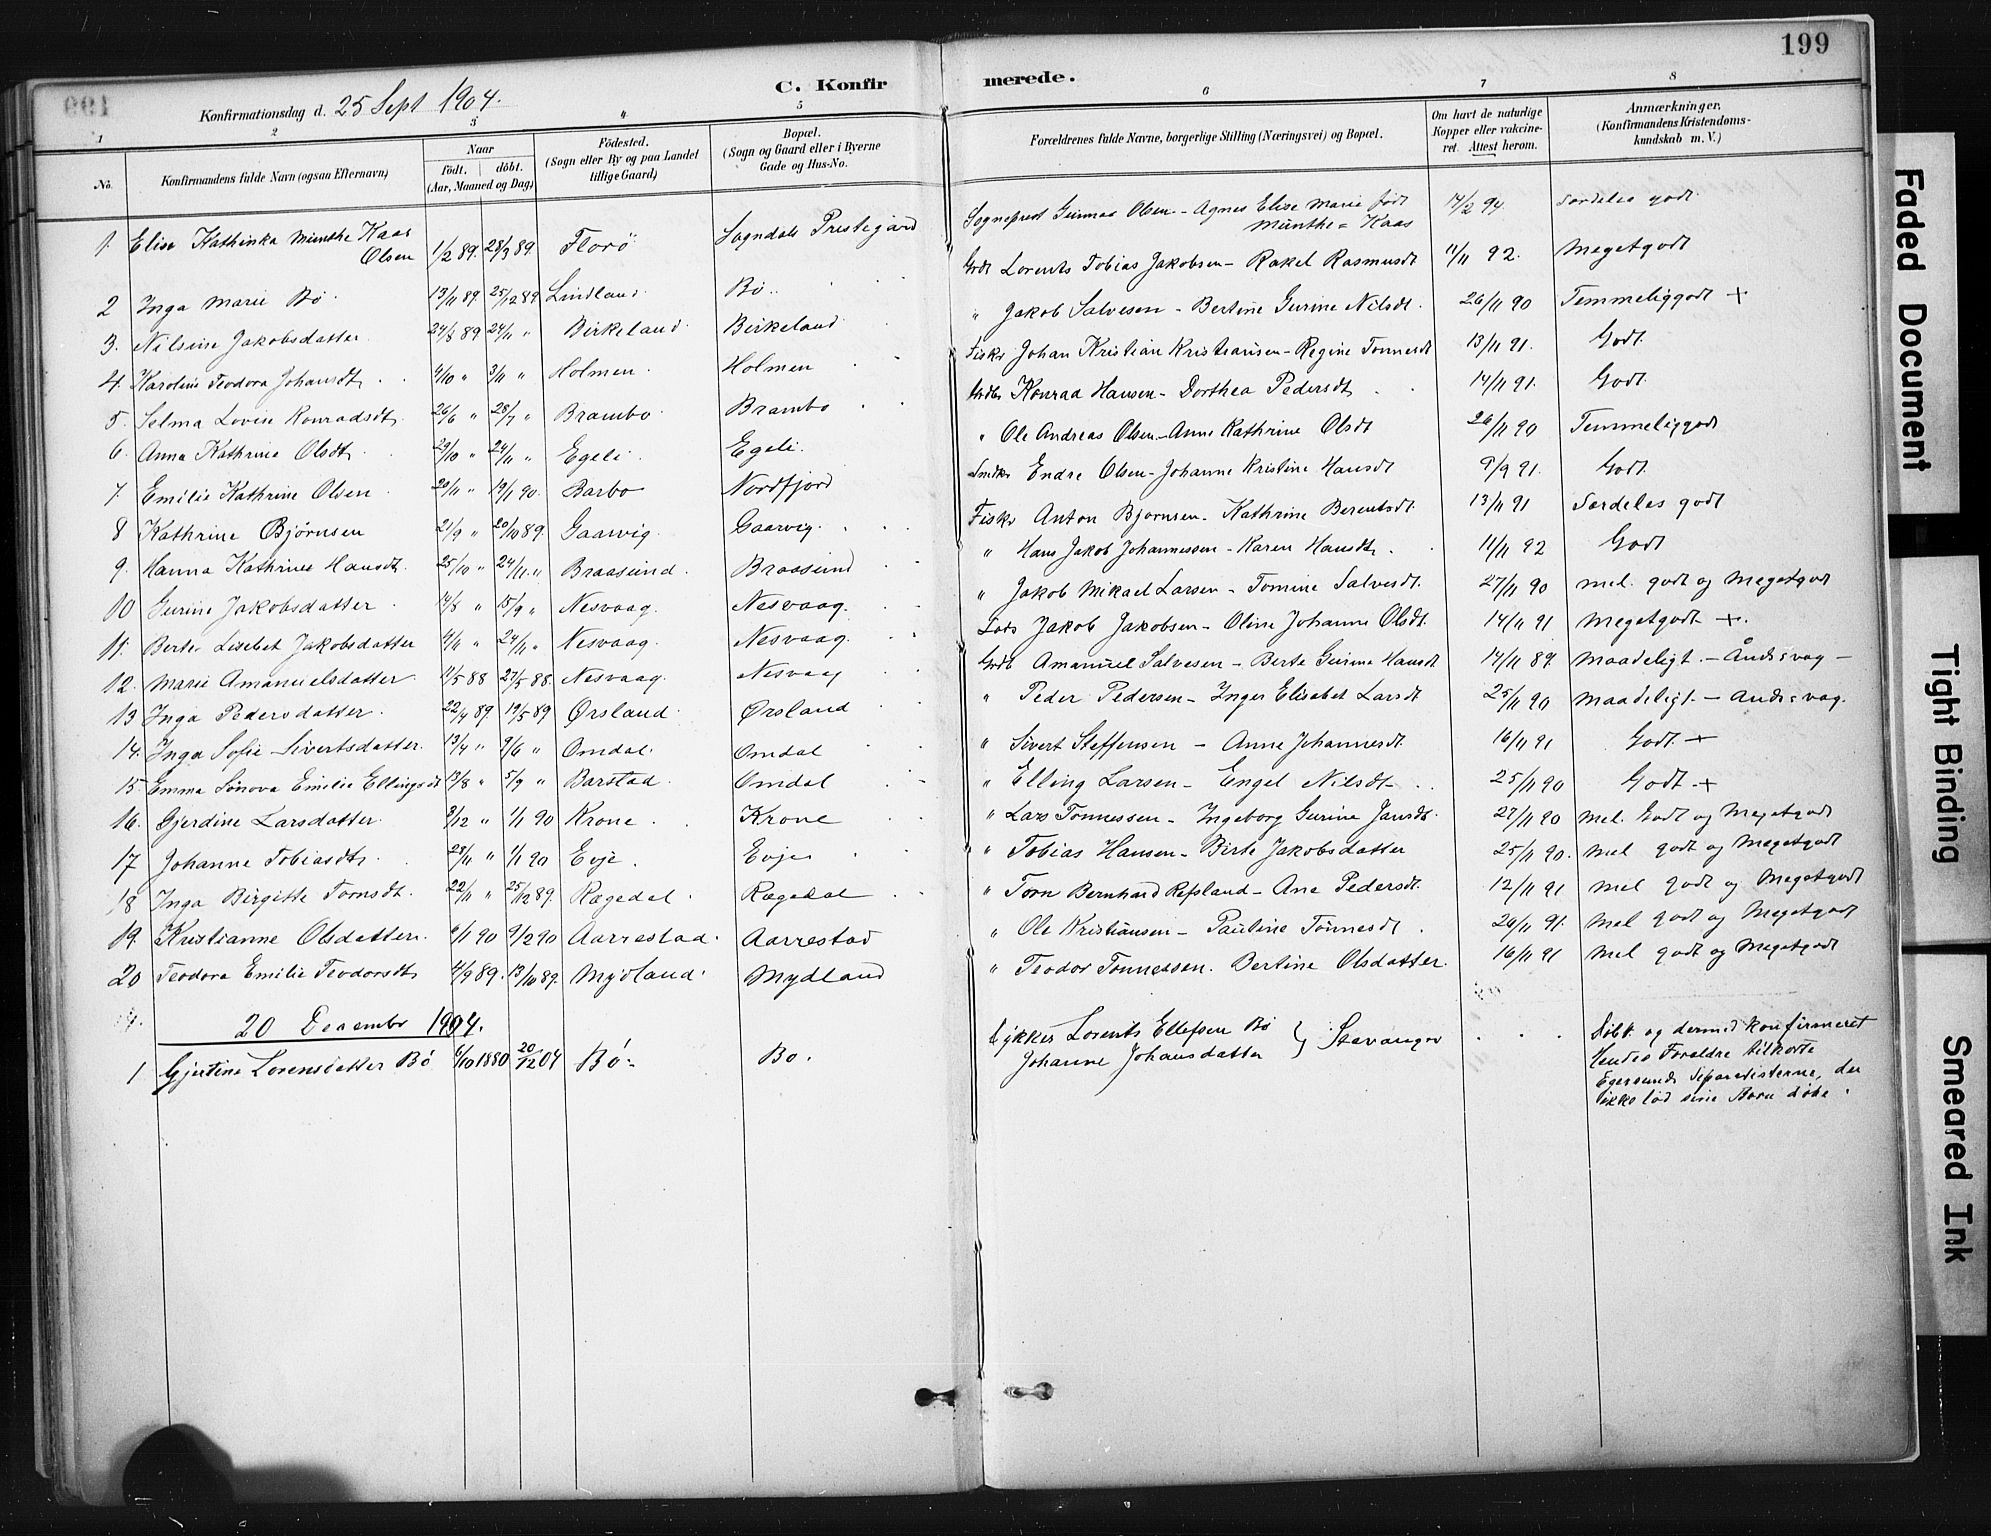 199
C. Konfirmerede.
Konfirmationsdag d. 25 Sept 1904.
1 2 3 4 5 6 7 8
No. Konfirmandens fulde Navn (ogsaa Efternavn) Naar født. døbt. (Aar, Maaned og Dag) Fødested. (Sogn eller By og paa Landet tillige Gaard) Bopæl. (Sogn og Gaard eller i Byerne Gade og Hus-No. Forældrenes fulde Navne, borgerlige Stilling (Næringsvei) og Bopæl. Om havt de naturlige Kopper eller vakcineret. Attest herom. Anmærkninger, (Konfirmandens Kristendomskundskab m. V.)
1. Elise Kathinka Munthe Kaas Olsen 1/2 89. 28/3 89. Florö Sogndals Prestegård Sogneprest Gunnar Olsen - Agnes Elise Marie født Munthe=Kaas 14/2 94 Særdeles godt
2 Inga Marie Bø 13/11 89. 25/12 89 Lindland Bø Grdb Lorents Tobias Jakobsen - Rakel Rasmusdt 11/11 92. Megetgodt
3. Nilsine Jakobsdatter 24/8 89 24/11 " Birkeland Birkeland " Jakob Salvesen - Bertine Gurine Nilsdt. 26/11 90 Temmeliggodt +
4 Karoline Teodora Johansdt. 4/10 " 3/11 " Holmen Holmen Fisker Johan Kristian Kristiansen - Regine Tønnesdt 13/11 91. Godt.
5. Selma Lovise Konradsdt. 26/6 " 28/7 " Brambo Brambo Grdbr Konrad Hansen - Dorthea Pedersdt 14/11 91. Godt
6. Anna Kathrine Olsdt. 29/10 " 24/11 " Egeli Egeli. " Ole Andreas Olsen - Anne Kathrine Olsdt 26/11 90 Temmeliggodt
7. Emilie Kathrine Olsen 20/11 " 19/1 90. Barbo Nordfjord Smdkr Endre Olsen - Johanne Kristine Hansdt 9/9 91. Godt.
8 Kathrine Bjørnsen 21/9 " 20/10 89. Gaarvig. Gaarvig. Fisker Anton Bjørnsen - Kathrine Berentsdt. 13/11 91 Særdeles godt
9. Hanna Kathrine Hansdt. 25/10 " 24/11 " Braasund. Braasund " Hans Jakob Johannessen - Karen Hansdt. 11/11 92 Godt
10 Gurine Jakobsdatter 14/8 " 15/9 " Nesvaag. Nesvaag. " Jakob Mikael Larsen - Tomine Salvesdt. 27/11 90 mel. godt og Megetgodt
11. Berte Lisebet Jakobsdatter 4/11 " 24/11 " Nesvaag. Nesvaag. Lods Jakob Jakobsen - Oline Johanne Olsdt. 14/11 91 Megetgodt +.
12. Marie Amanuelsdatter 11/5 88 27/5 88. Nesvaag. Nesvaag Grdb. Amanuel Salvesen - Berte Gurine Hansdt 14/11 89. Maadeligt. - Åndsvag -
13 Inga Pedersdatter. 22/4 89. 19/5 89 Ørsland. Ørsland " Peder Pedersen - Inger Elisabet Larsdt 25/11 90 Maadeligt. - Andsvag.
14. Inga Sofie Sivertsdatter. 13/4 " 9/6 " Omdal. Omdal " Sivert Steffensen - Anne Johannesdt. 16/11 91 Godt. +
15 Emma Sønova Emilie Ellingsdt 13/8 " 5/9 " Barstad. Omdal " Elling Larsen - Engel Nilsdt 25/11 90 Godt. +
16. Gjerdine Larsdatter. 3/12 " 1/1 90 Krone Krone " Lars Tønnessen - Ingeborg Gurine Jansdt. 27/11 90 mel. Godt og Megetgodt
17 Johanne Tobiasdt. 23/11 " 1/1 90 Evje. Evje " Tobias Hansen - Birte Jakobsdatter 25/11 90. mel godt og Megetgodt
18 Inga Birgitte Tornsdt. 22/11 " 25/12 89. Rægedal Rægedal " Torn Bernhard Refsland - Ane Pedersdt. 12/11 91 mel godt og Megetgodt
19. Kristianne Olsdatter. 6/1 90 9/2 90 Aarrestad. Aarrestad " Ole Kristiansen - Pauline Tønnesdt 26/11 91. Mel godt og Megetgodt
20 Teodora Emilie Teodorsdt. 4/9 89. 13/10 89. Mydland. Mydland " Teodor Tønnessen. Bertine Olsdatter. 16/11 91 Mel godt og Megetgodt
20 December 1904.
1 Gjertine Lorensdatter Bö 6/10 1880 20/12 04 Bö. Bø. Lorents Ellefsen Bö Johanne Johansdatter } Stavanger Döbt og dermed konfirmeret
Hendes Foraldre tilhørte
Egersunds Separatisterne, der
ikke lod sine Børn døbe.
Faded Document
Tight Binding
Smeared Ink